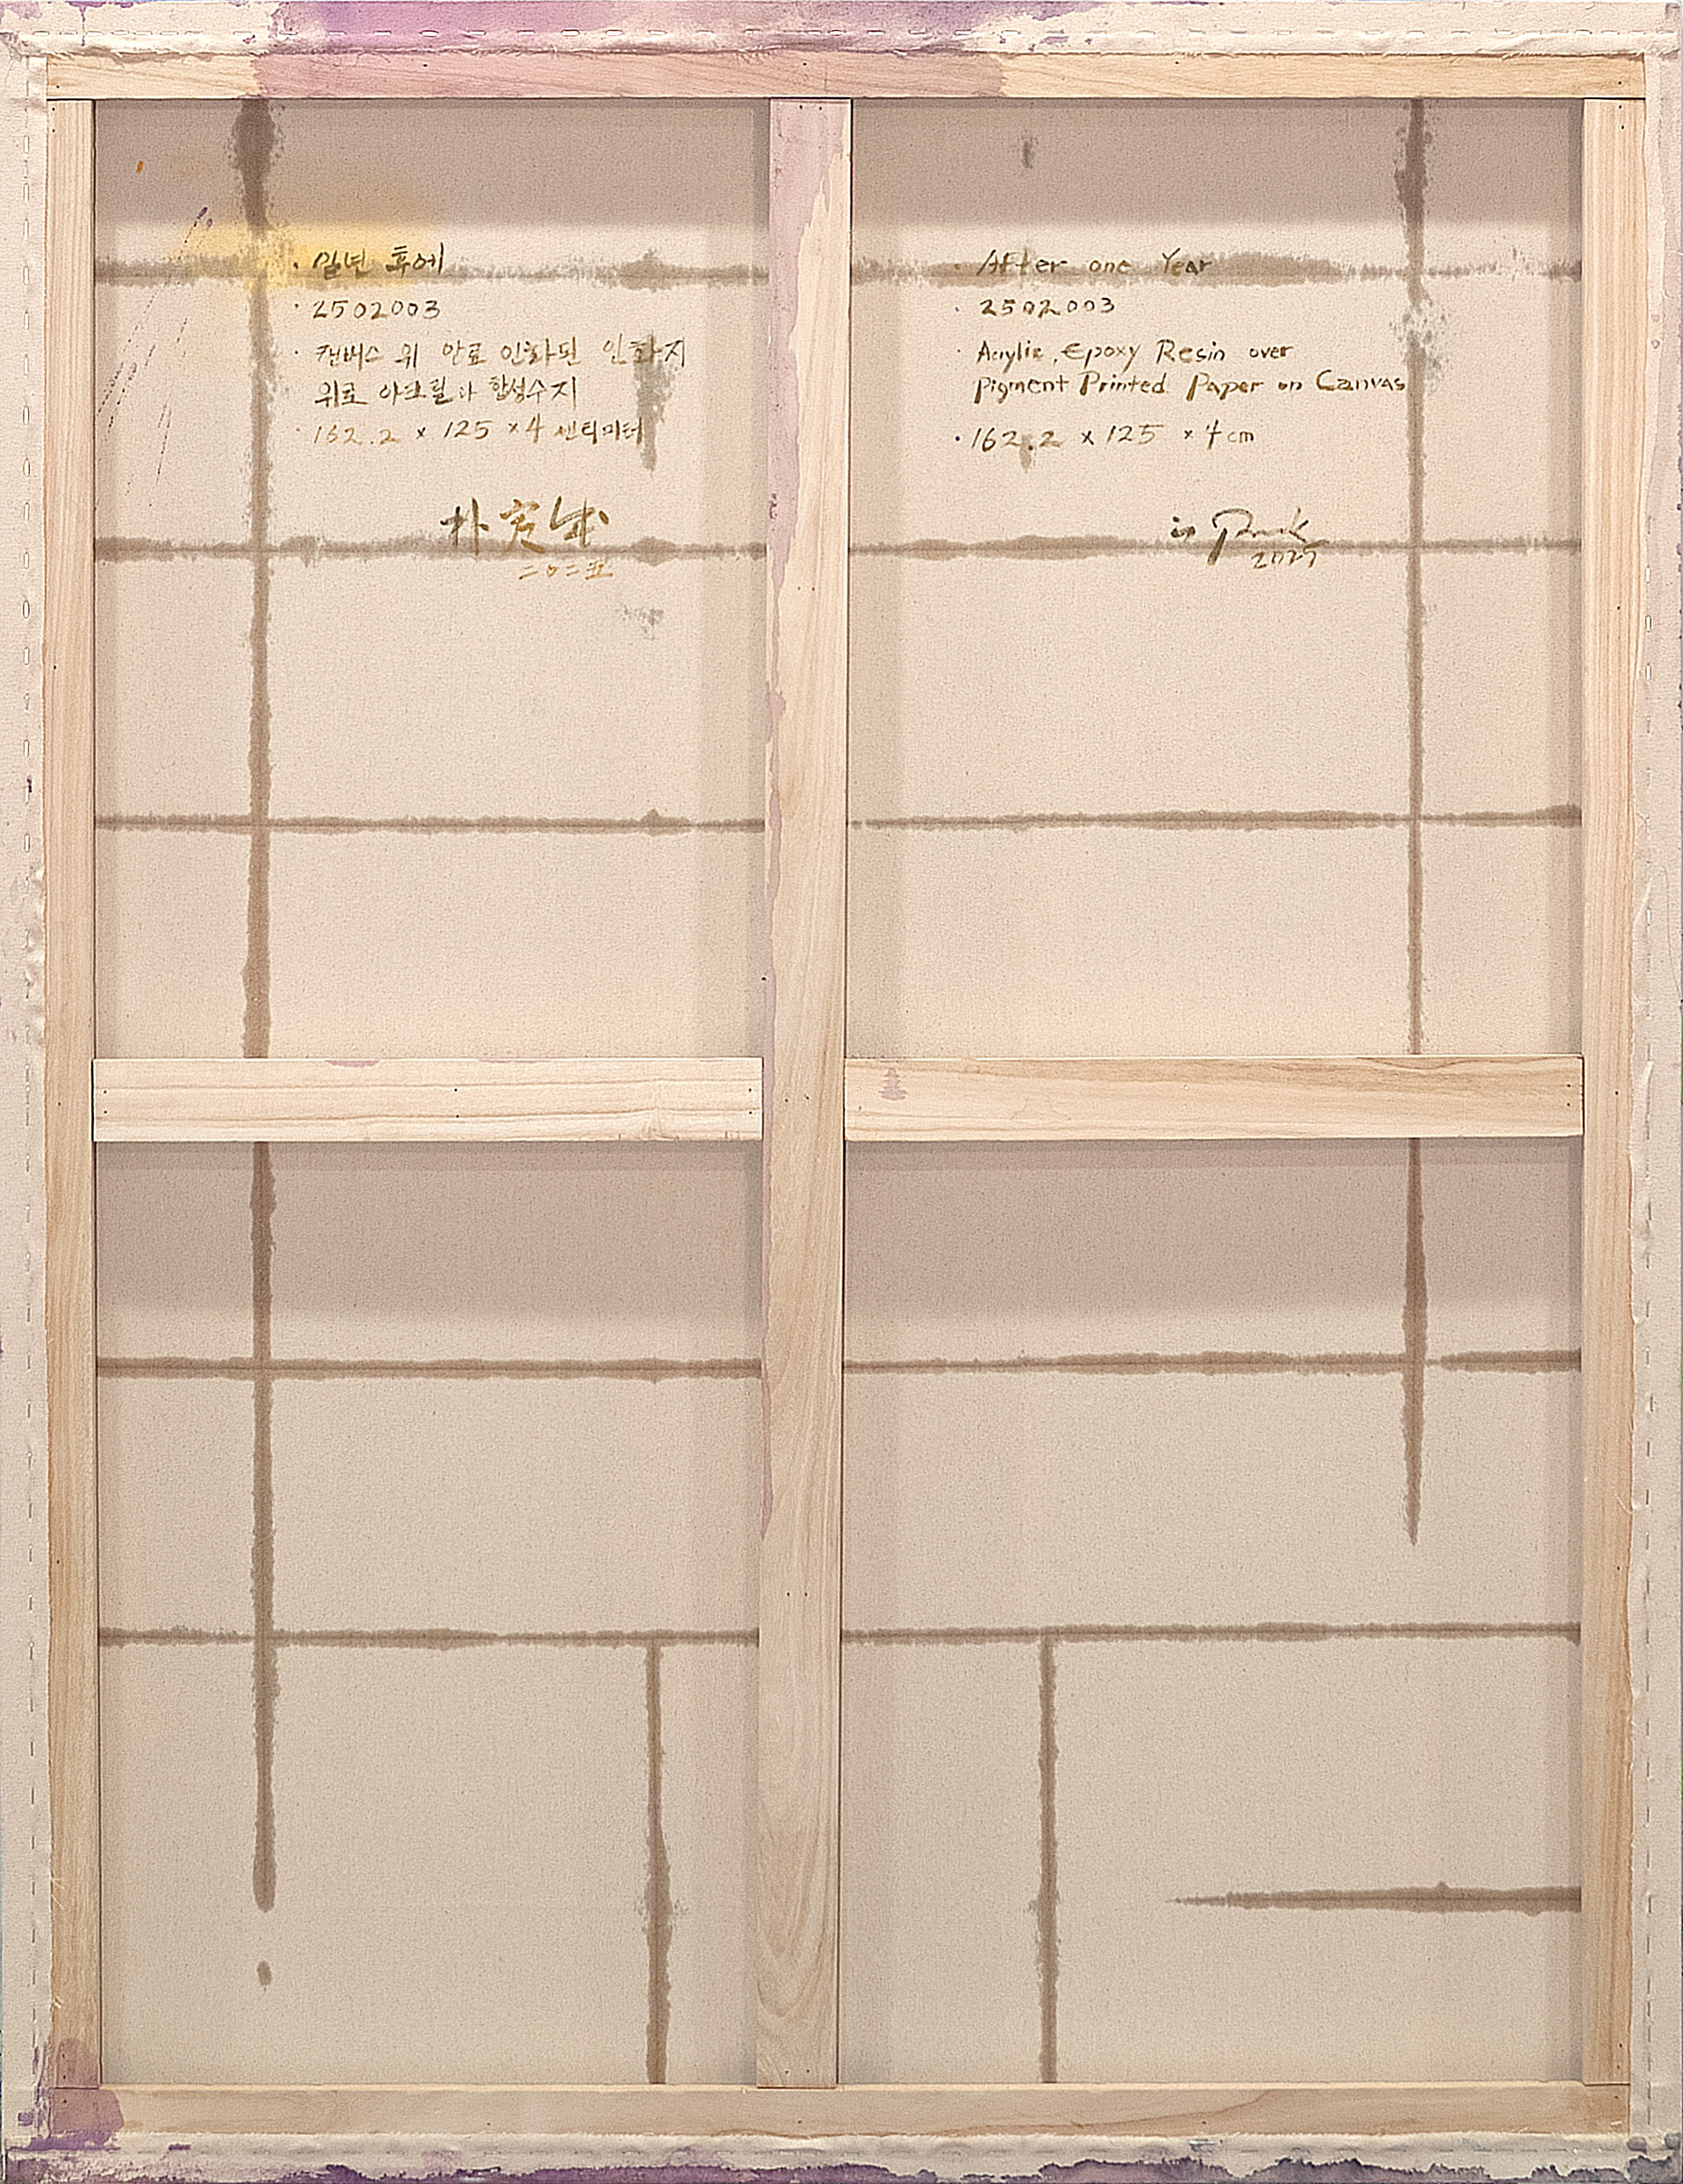 · 일년 후에
· 2502003
· 캔버스 위 안료 인화된 인화지
위로 아크릴과 합성수지
· 162.2 × 125 × 4 센티미터
朴
二〇二五
· After one Year
· 2502003
· Acrylic, Epoxy Resin over
Pigment Printed Paper on Canvas
· 162.2 × 125 × 4 cm
Park